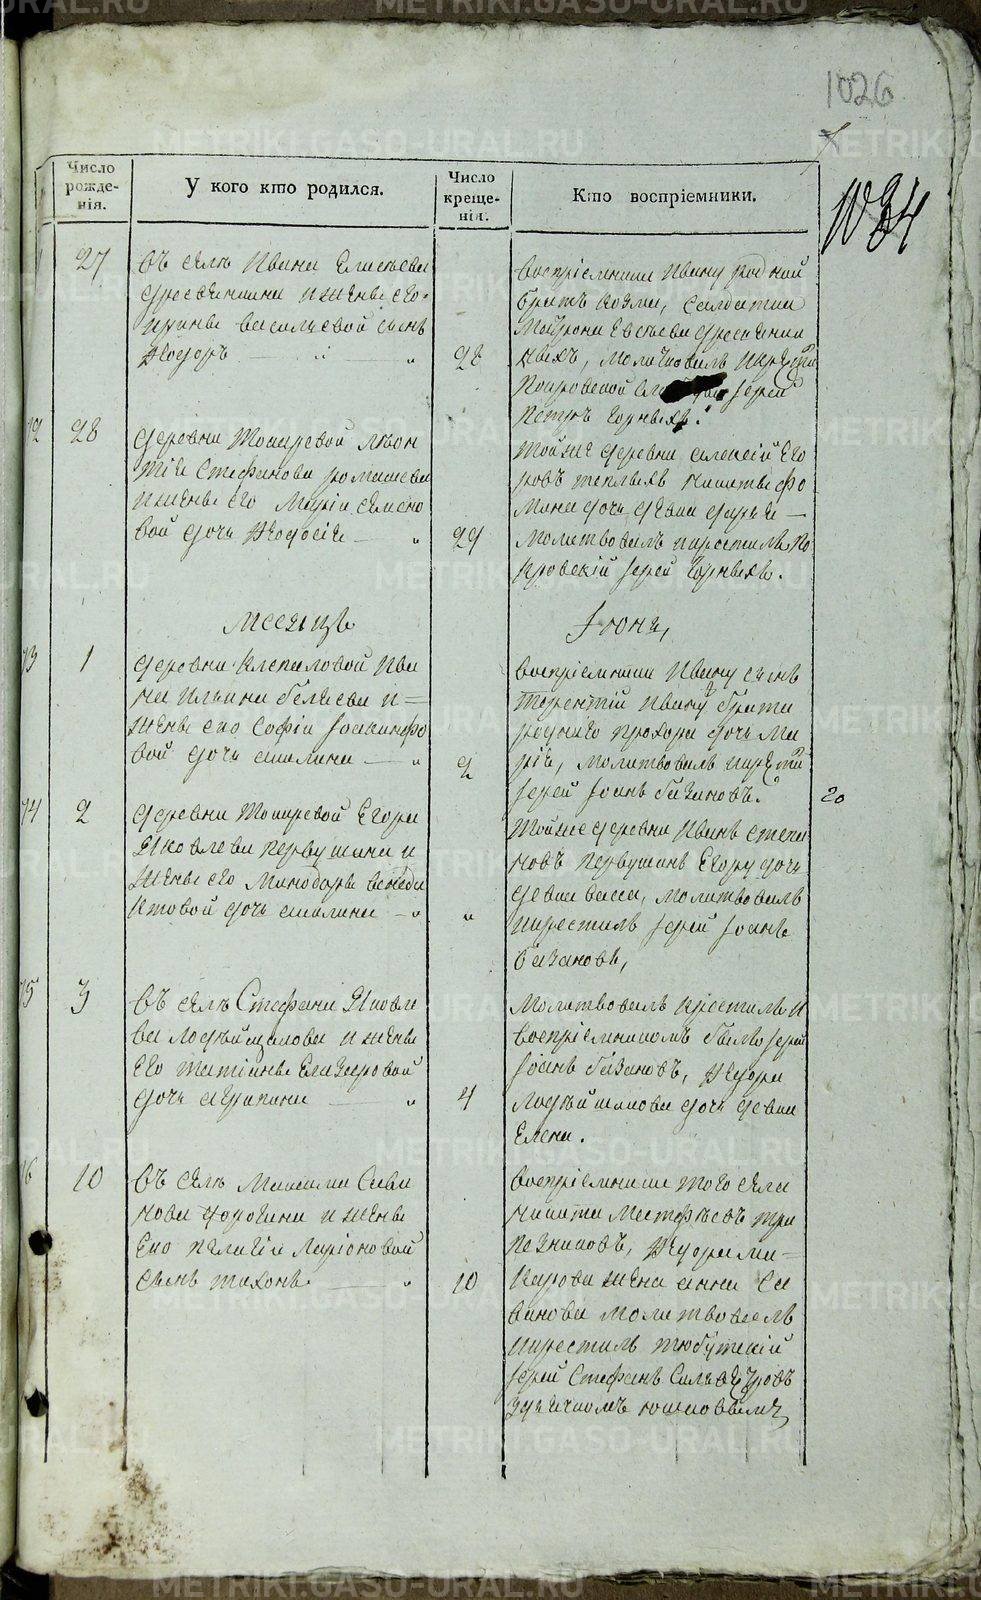 1026
№ 34
Число рожденія.
У кого кто родился.
Число крещенія.
Кто воспріемники.
27
въ селѣ Ивана Елисѣева
и жены его
Ирины Васильевой сынъ
Ѳеодоръ
28
воспріемники Ивану родной
братъ Козма, солдатки
Матроны
молитвовалъ и крестилъ
Покровской іерей
Петръ Горныхъ.
12
28
деревни Токаревой Леон
тія Стефанова Ромашева
и жены его Маріи Семено
вой дочь Ѳеодосія
29
той же деревни Алексій Его
ровъ Теплыхъ
дочь девка Дарья
молитвовалъ и крестилъ По
кровскій іерей Горныхъ.
месяцъ
Іюня,
13
1
деревни Клепаловой Ива
на Ильина Беляева и
жены его Софіи Іоакинфо
вой дочь Акилина
2
воспріемники Ивану сынъ
Терентій Ивану брата
роднаго Прохора дочь Ма
рія, молитвовалъ и крести
іерей Іоаннъ Базановъ.
20
14
2
деревни Токаревой Егора
Яковлева Первушина и
жены его Минодоры Венеди
ктовой дочь Акилина
"
той же деревни Иванъ Степа
новъ Первушинъ Егору дочь
девка Васса, молитвовалъ
и крестилъ іерей Іоаннъ
Базановъ,
15
3
въ селѣ Стефана Яковле
ва Лодѣйщикова и жены
его Татіаны Елизаровой
дочь Агрипина
4
молитвовалъ крестилъ и
воспріемникомъ былъ іерей
Іоаннъ Базановъ, Ѳедора
Лодѣйщикова дочь девка
Елена.
16
10
въ селѣ Максима Сави
нова и жены
его Пелагіи Ларіоновой
сынъ Тихонъ
10
воспріемники того села
Никита Матфѣевъ Тря
пезниковъ, Ѳедора Ма
карова жена Анна Са
винова молитвовалъ
и крестилъ Тюбукскій
іерей Стефанъ Сильвестровъ
METRIKI.GASO-URAL.RU